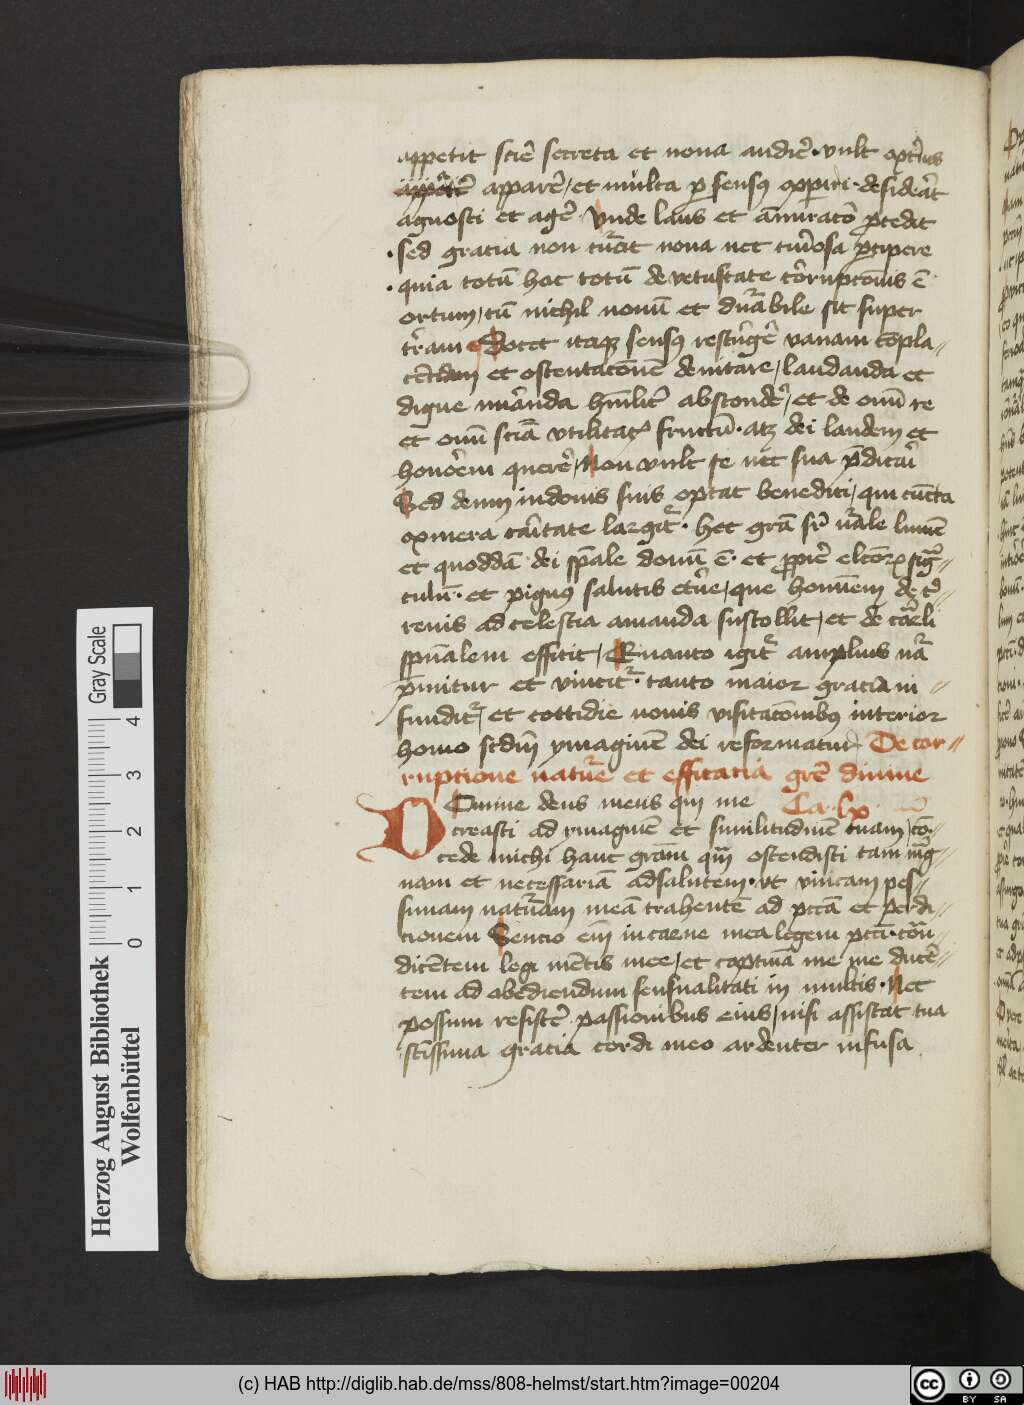 appetit scire secreta et noua audire · vult exterius
apparere / et multa per sensus experiri · desiderat
agnosci et agere · Vnde laus et admiratio procedit
· sed gracia non curat noua nec curiosa percipere
· quia totum hoc totum de vetustate corrupcionis est
ortum / cum nichil nouum et durabile sit super
terram Docet itaque sensus restringere vanam compla-
cenciam et ostentacionem deuitare / laudanda et
digne miranda humiliter abscondere / et de omni re
et omni sciencia vtilitatis fructum · atque dei laudem et
honorem querere / Non vult se nec sua predicari
Sed deum in donis suis optat benedici / qui cuncta
ex mera caritate largitur · hec gracia supernaturale lumen
et quoddam dei speciale donum est · et proprie electorum signa-
culum · et pignus salutis eterne / que hominem de ter-
renis ad celestia amanda sustollit / et de carnali
spiritualem efficit / Quanto igitur amplius natura
premitur et vincitur · tanto maior gracia in-
funditur / et cottidie nouis visitacionibus interior
homo secundum ymaginem dei reformatur De cor-
rupcione nature et efficacia gracie diuine
Domine deus meus qui me Ca · lx
creasti ad ymaginem et similitudinem tuam / con-
cede michi hanc graciam quam ostendisti tam mag-
nam et necessariam ad salutem · vt vincam pes-
simam naturam meam trahentem ad peccata et perdi-
cionem Sencio enim in carne mea legem peccati · contra-
dicentem legi mentis mee / et captiuam me me ducen-
tem ad obediendum sensualitati in multis · Nec
possum resistere passionibus eius / nisi assistat tua
sanctissima gracia cordi meo ardenter infusa
Gray Scale
0 1 2 3 4
Herzog August Bibliothek
Wolfenbüttel
(c) HAB http://diglib.hab.de/mss/808-helmst/start.htm?image=00204
cc BY SA